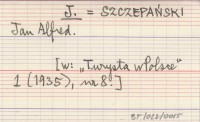 J. = SZCZEPAŃSKI
Jan Alfred.
[w: „Turysta w Polsce"
1 (1935), nr 8.]
BJ/062/0015